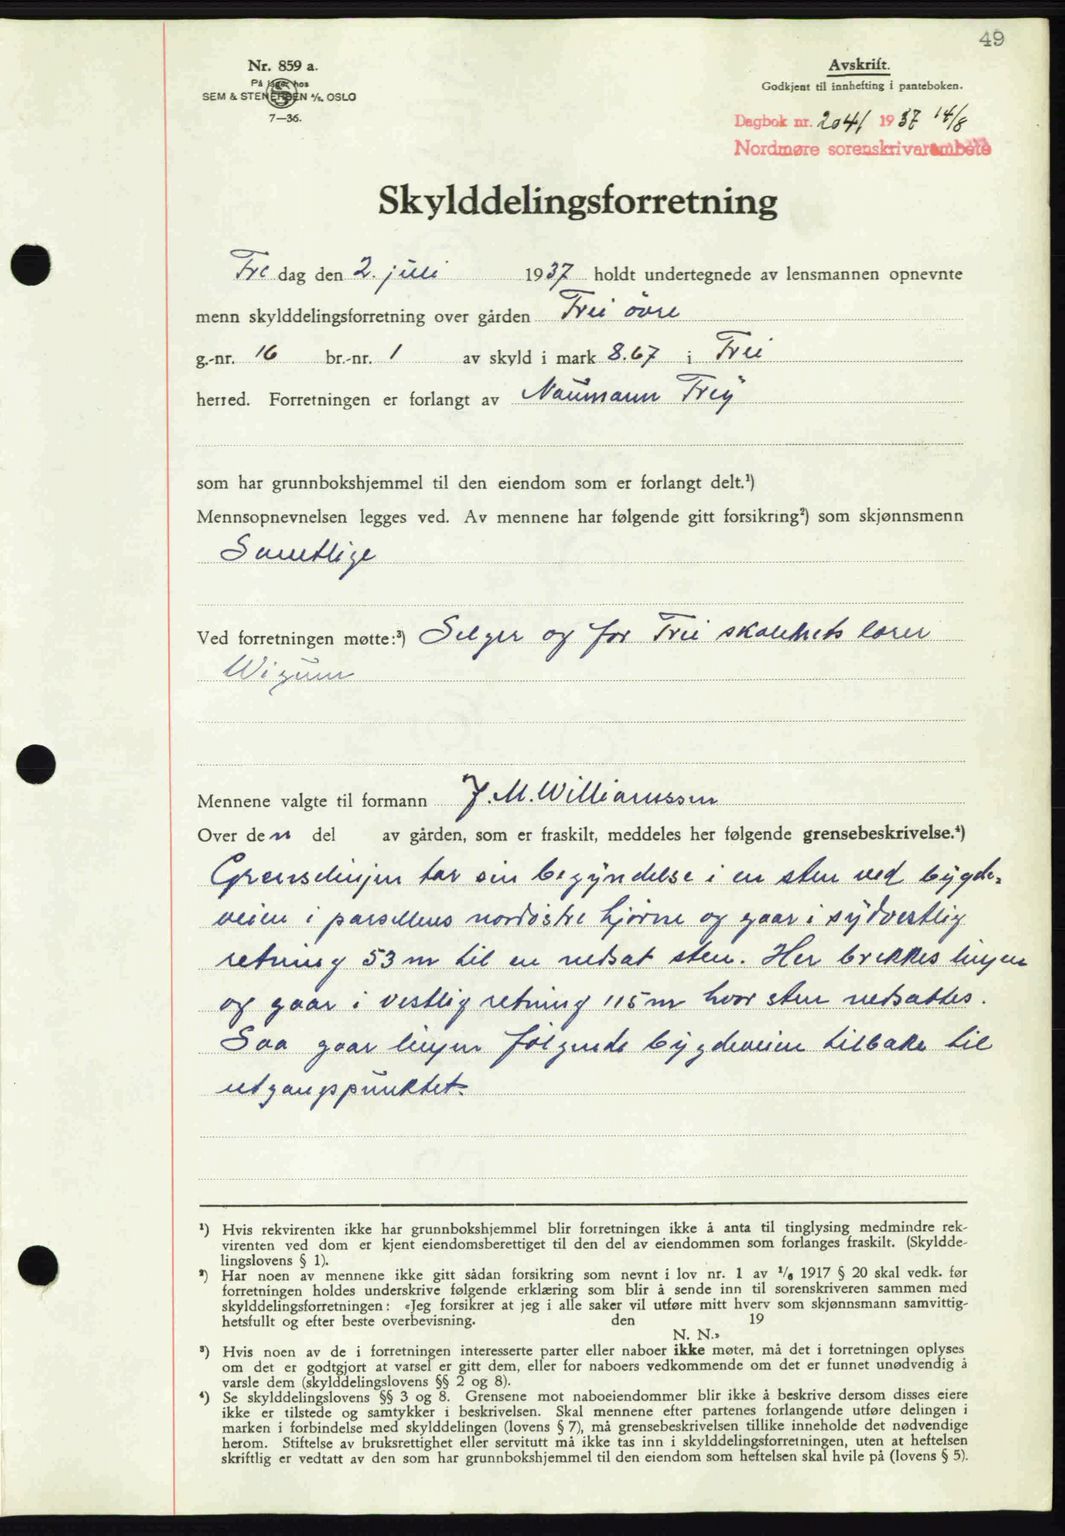 49
Nr. 859 a.
På lager hos
SEM & STENERSEN A/S. OSLO
7—36.
Avskrift.
Godkjent til innhefting i panteboken.
Dagbok nr. 2041 1937 14/8
Nordmøre sorenskrivarembete
Skylddelingsforretning
Fredag den 2. juli 1937 holdt undertegnede av lensmannen opnevnte
menn skylddelingsforretning over gården Frei övre
g.-nr. 16 br.-nr. 1 av skyld i mark 8.67 i Frei
herred. Forretningen er forlangt av Naumann Frey
som har grunnbokshjemmel til den eiendom som er forlangt delt.¹)
Mennsopnevnelsen legges ved. Av mennene har følgende gitt forsikring²) som skjønnsmenn
Samtlige
Ved forretningen møtte:³) Selger og for Frei lærer
Mennene valgte til formann J. M. Williamssen
Over den del av gården, som er fraskilt, meddeles her følgende grensebeskrivelse.⁴)
Grenselinjen tar sin begyndelse i en sten ved bygde-
veien i parsellens nordöstre hjörne og gaar i sydvestlig
retning 53 m til en nedsat sten. Her brekkes linjen
og gaar i vestlig retning 115 m hvor sten nedsattes.
Saa gaar linjen følgende bygdeveien tilbake til
utgangspunktet.
¹) Hvis rekvirenten ikke har grunnbokshjemmel blir forretningen ikke å anta til tinglysing medmindre rek-
virenten ved dom er kjent eiendomsberettiget til den del av eiendommen som forlanges fraskilt. (Skyldde-
lingslovens § 1).
²) Har noen av mennene ikke gitt sådan forsikring som nevnt i lov nr. 1 av 1/6 1917 § 20 skal vedk. før
forretningen holdes underskrive følgende erklæring som blir å sende inn til sorenskriveren sammen med
skylddelingsforretningen: «Jeg forsikrer at jeg i alle saker vil utføre mitt hverv som skjønnsmann samvittig-
hetsfullt og efter beste overbevisning. den 19
N. N.»
³) Hvis noen av de i forretningen interesserte parter eller naboer ikke møter, må det i forretningen oplyses
om det er godtgjort at varsel er gitt dem, eller for naboers vedkommende om det er funnet unødvendig å
varsle dem (skylddelingslovens §§ 2 og 8).
⁴) Se skylddelingslovens §§ 3 og 8. Grensene mot naboeiendommer blir ikke å beskrive dersom disses eiere
ikke er tilstede og samtykker i beskrivelsen. Skal mennene efter partenes forlangende utføre delingen i
marken i forbindelse med skylddelingen (lovens § 7), må grensebeskrivelsen tillike inneholde det nødvendige
herom. Stiftelse av bruksrettighet eller servitutt må ikke tas inn i skylddelingsforretningen, uten at heftelsen
skriftlig er vedtatt av den som har grunnbokshjemmel til den eiendom som heftelsen skal hvile på (lovens § 5).